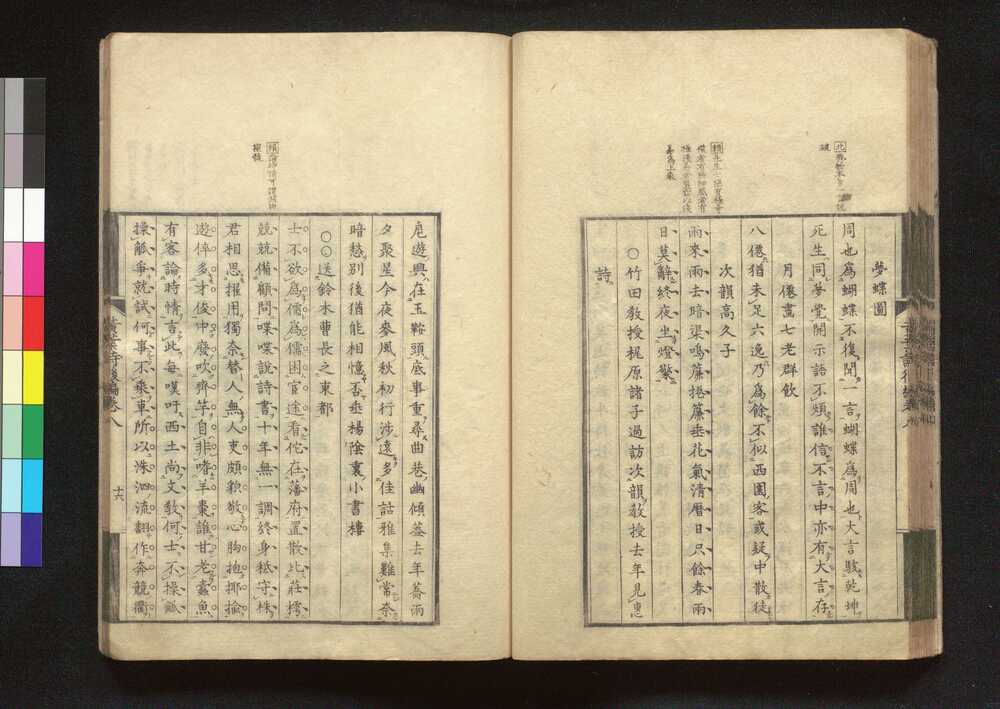 夢蝶圖
周也爲蝴蝶不復閒一言蝴蝶爲周也大言駭乾坤
死生同夢覺開示語不煩誰信不言中亦有大言存
月僊畫七老群飲
八僊猶未足六逸乃爲餘不似西園客或疑中散徒
次韻高久子
雨來雨去暗渠鳴簾捲簾垂花氣清曆日只餘春兩
日莫辭終夜坐燈檠
○竹田敎授梶原諸子過訪次韻敎授去年見惠
詩
巵遊興在玉鞍頭底事重尋曲巷幽傾葢去年蕎雨
夕聚星今夜麥風秋初行涉遠多佳話雅集難常奈
暗愁別後猶能相憶否垂楊陰裏小書樓
○○送鈴木曹長之東都
士不欲爲儒爲儒困官途看佗在藩府置散比莊樗
兢兢備顧問喋喋說詩書十年無一調終身秪守株
君相思擢用獨奈替人無人吏頗貌敬心胸抱揶揄
遊倅多才俊中廢吹齊竽自非嗜羊棗誰甘老蠹魚
有客論時情言此每嘆吁西土尚文敎何士不操觚
操觚爭就試何事不乘車所以洙泗流翻作奔競衢
黃葉夕陽邨舍詩後編卷八
十六